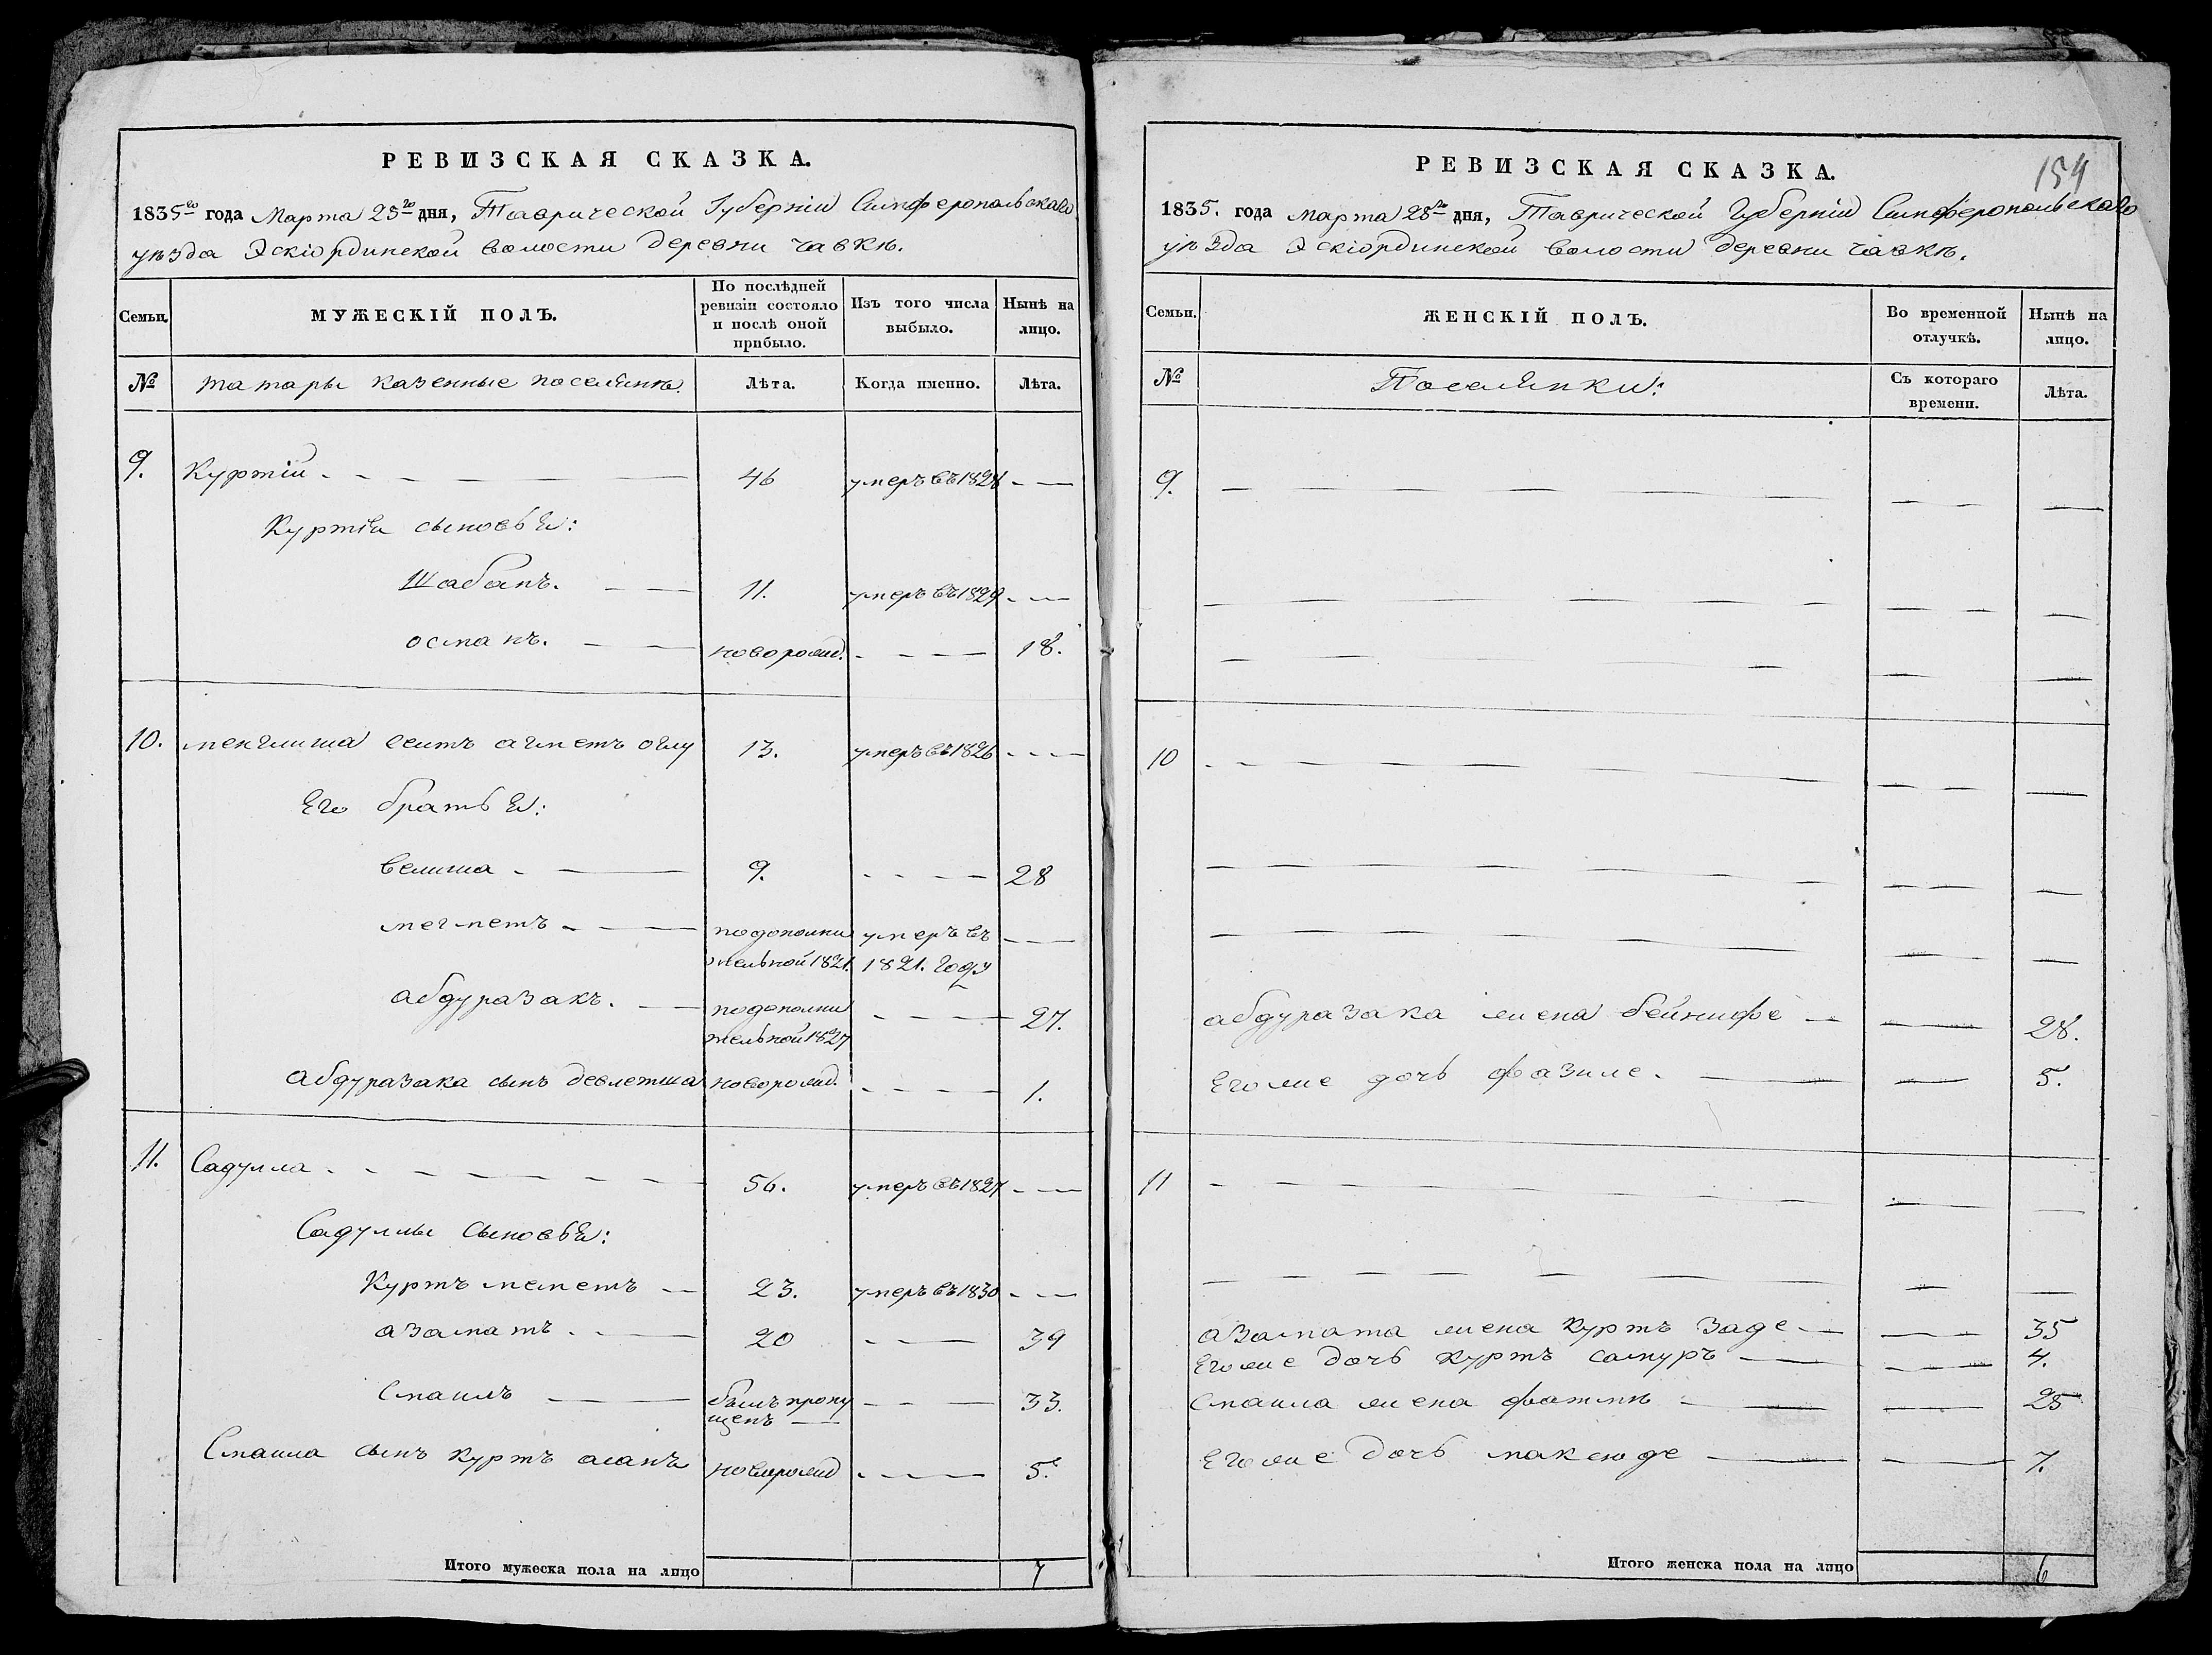 РЕВИЗСКАЯ СКАЗКА.
1835го года Марта 25го дня, Таврической Губерніи Симферопольскаго
уѣзда Эскіординской волости деревни Чавкѣ.
Семьи.
МУЖЕСКІЙ ПОЛЪ.
По послѣдней ревизіи состояло и послѣ оной прибыло.
Изъ того числа выбыло.
Нынѣ на лицо.
№
татары казенные поселяне.
Лѣта.
Когда именно.
Лѣта.
9. Куртій 46 умеръ въ 1828
Куртія сыновья:
Шабанъ. 11. умеръ въ 1829
османъ. новорожд. 18.
10. менглиша сеитъ агметъ оглу 13. умеръ въ 1826
Его братья:
велиша 9. 28
мегметъ подополни умеръ въ
тельной 1821. 1821. году
абдуразакъ. подополни 27.
тельной 1827
абдуразака сынъ девлетша новорожд. 1.
11. Садулла 56. умеръ въ 1827
Садуллы сыновья:
Куртъ меметъ 23. умеръ въ 1830
азаматъ 20 39
Смаилъ былъ пропу 33.
щенъ
Смаила сынъ куртъ асанъ новорожд 5.
Итого мужеска пола на лицо 7
154
РЕВИЗСКАЯ СКАЗКА.
1835. года марта 25го дня, Таврической Губерніи Симферопольскаго
уѣзда Эскіординской волости деревни Чавкѣ.
Семьи.
ЖЕНСКІЙ ПОЛЪ.
Во временной отлучкѣ.
Нынѣ на лицо.
№
Поселянки:
Съ котораго времени.
Лѣта.
9.
10
абдуразака жена бейнифе 28.
Его же дочь фазиле. 5.
11
азамата жена Куртъ заде 35
Его же дочь куртъ самуръ 4.
Смаила жена фатмѣ 25
Его же дочь максюде 7.
Итого женска пола на лицо 6